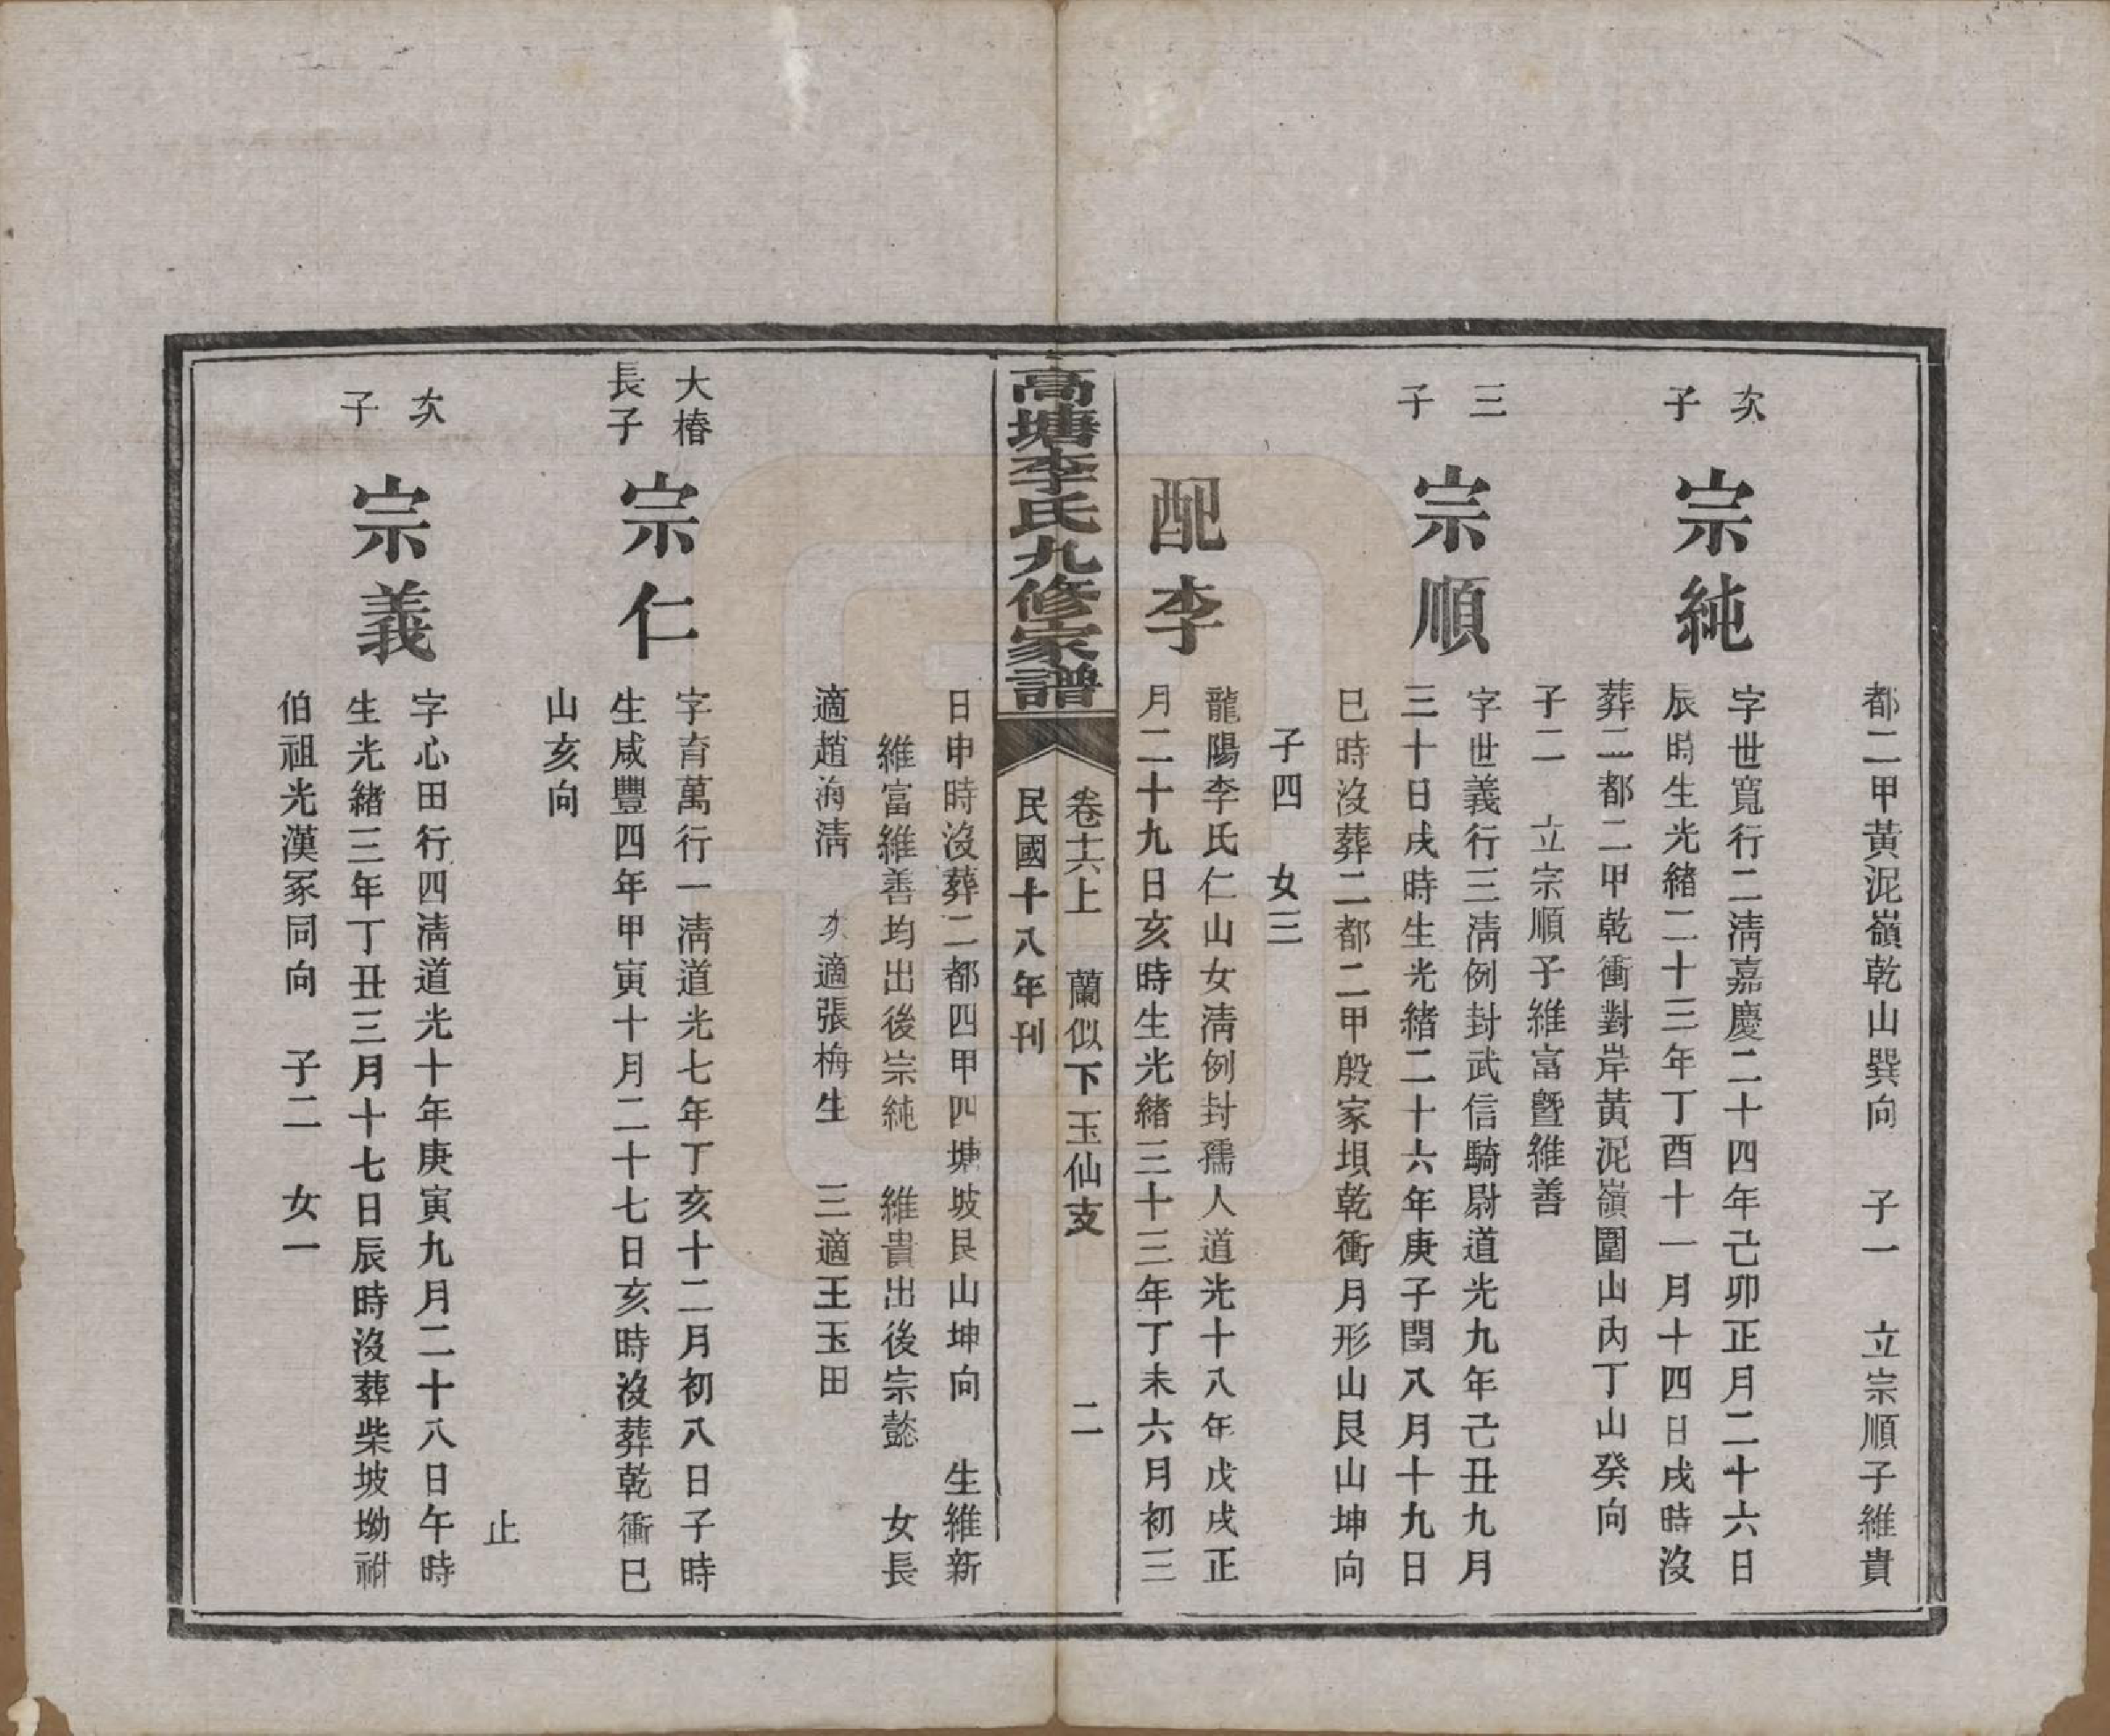 都二甲黃泥嶺乾山巽向　子一　立宗順子維貴
次子
宗純
字世寬行二淸嘉慶二十四年己卯正月二十六日
辰時生光緒二十三年丁酉十一月十四日戌時沒
葬二都二甲乾衝對岸黃泥嶺圍山內丁山癸向
子二　立宗順子維富曁維善
三子
宗順
字世義行三淸例封武信騎尉道光九年己丑九月
三十日戌時生光緒二十六年庚子閏八月十九日
巳時沒葬二都二甲殷家垻乾衝月形山艮山坤向
子四　女三
配李
龍陽李氏仁山女淸例封孺人道光十八年戊戌正
月二十九日亥時生光緒三十三年丁未六月初三
高塘李氏九修家譜
卷十六上　蘭似下玉仙支　二
民國十八年刊
日申時沒葬二都四甲四塘坡艮山坤向　生維新
維富維善均出後宗純　維貴出後宗懿　女長
適趙海淸　次適張梅生　三適王玉田
大椿長子
宗仁
字育萬行一淸道光七年丁亥十二月初八日子時
生咸豐四年甲寅十月二十七日亥時沒葬乾衝巳
山亥向
止
次子
宗義
字心田行四淸道光十年庚寅九月二十八日午時
生光緒三年丁丑三月十七日辰時沒葬柴坡坳祔
伯祖光漢冢同向　子二　女一